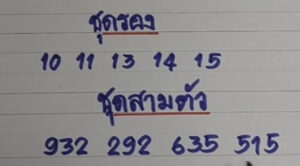 ชุดรอง
10 11 13 14 15
ชุดสามตัว
932 292 635 515